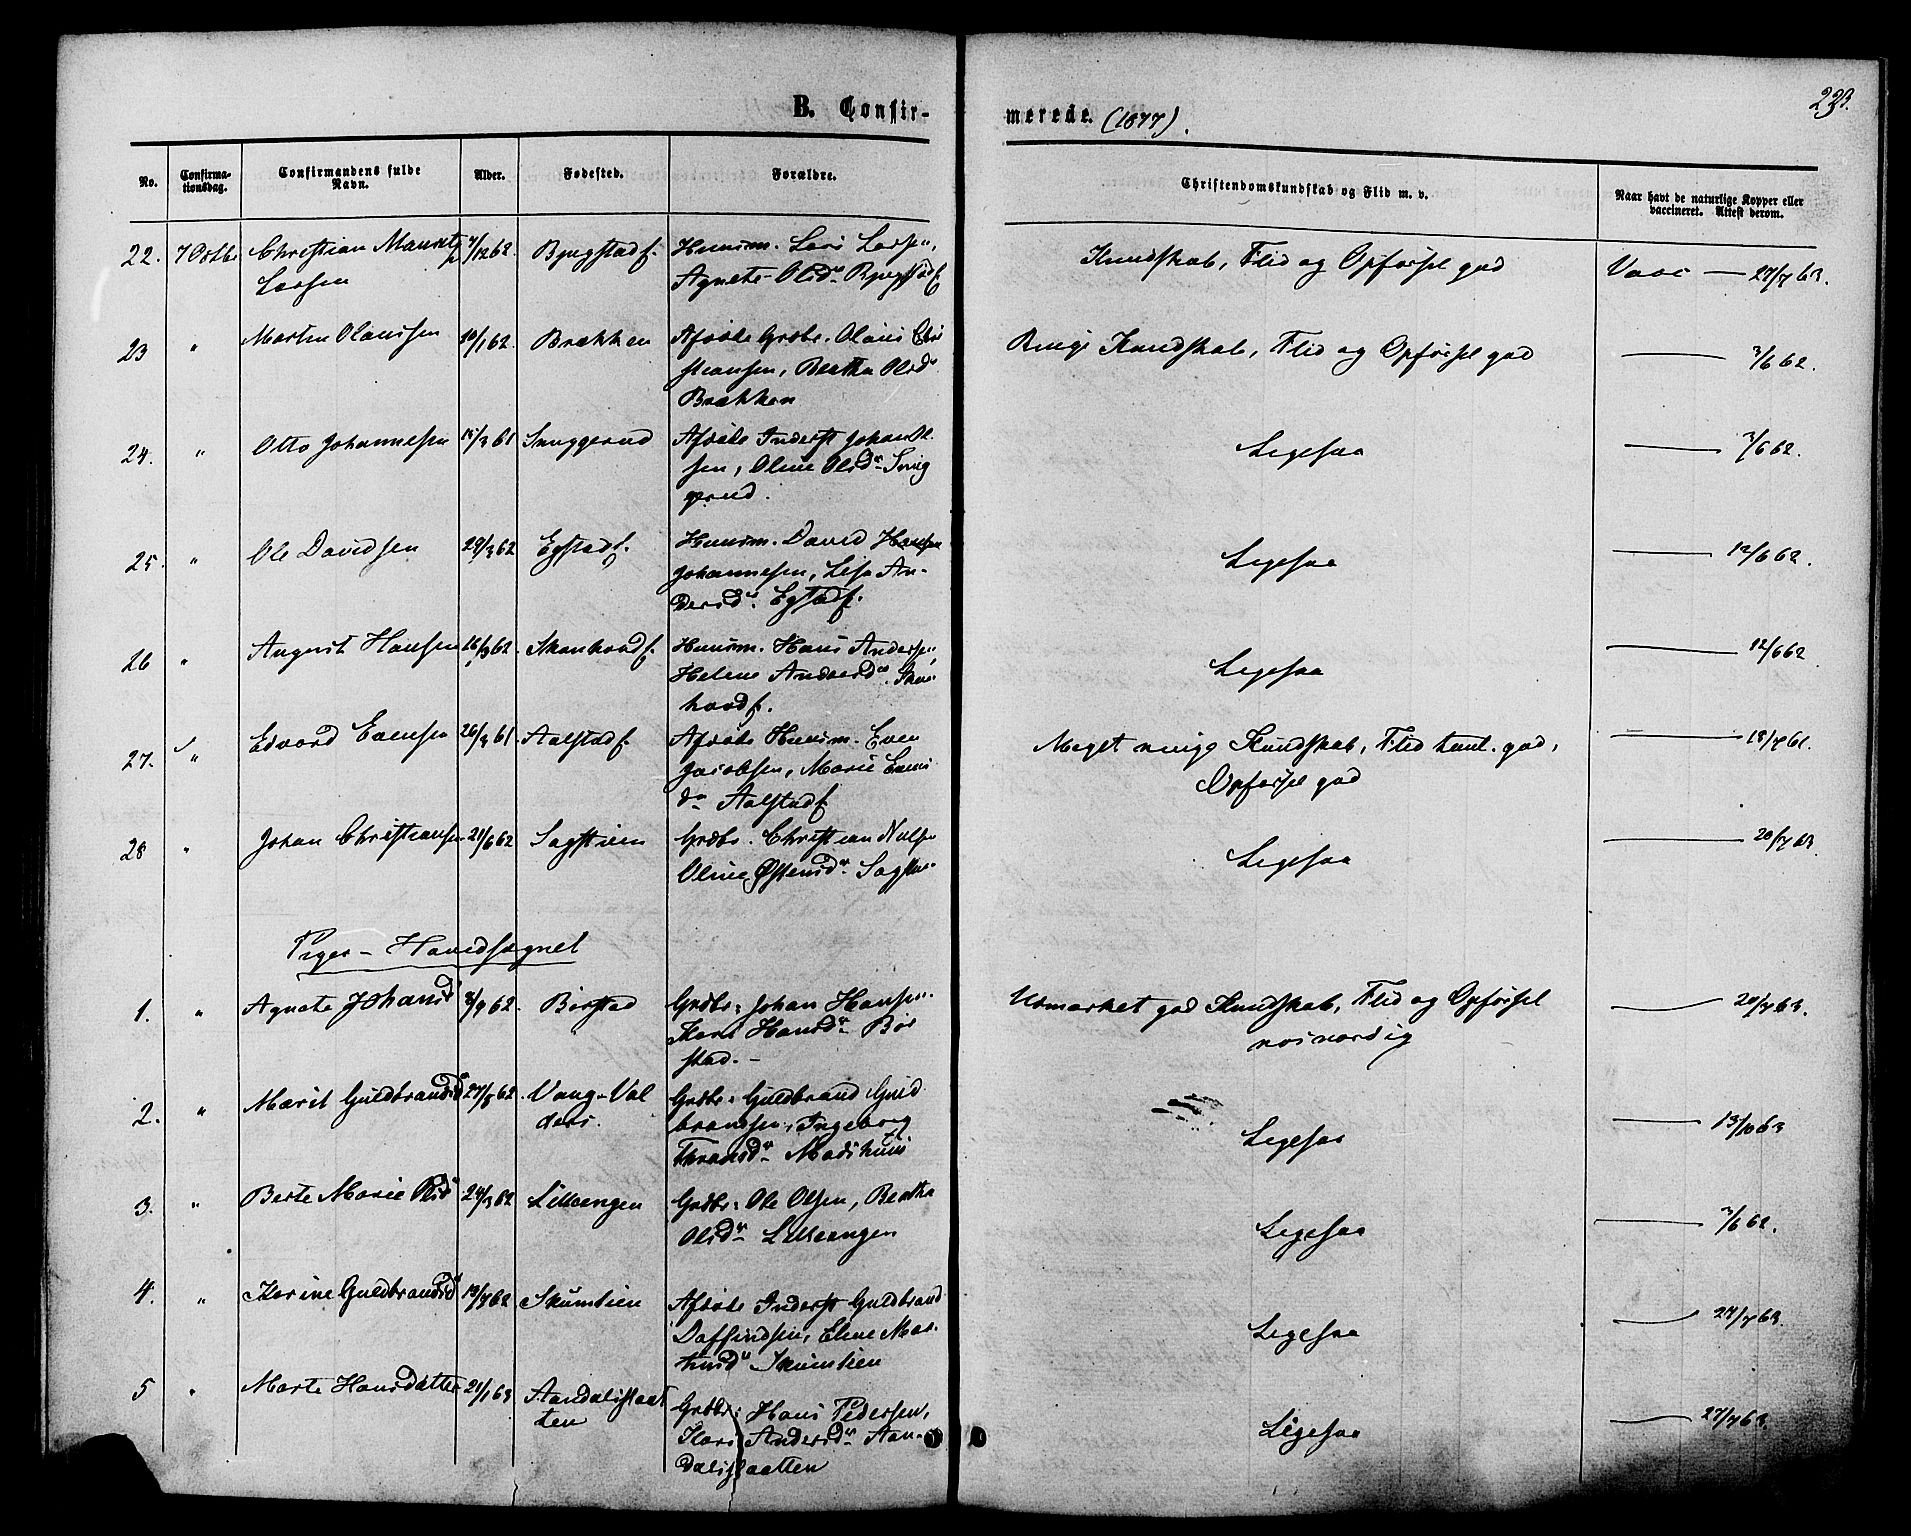 B. Confir-
merede. (1877).
223.
No.
Confirma-
tionsdag.
Confirmandens fulde
Navn.
Alder.
Fødested.
Forældre.
Christendomskundskab og Flid m. v.
Naar havt de naturlige Kopper eller
vaccineret. Attest derom.
22. 7 Octbr Christian Mauritz 7/12 62 Bjugstadf. Huusm. Lars Larsen,
Larsen Agnete Olsdr Bjugstadf
Kundskab, Flid og Opførsel god
Vacc — 27/7 63.
23 " Martin Olaussen 10/1 62. Brækken Afdøde Grdbr. Olaus Chri
stiansen, Bertha Olsdr
Brækken
Ringe Kundskab, Flid og Opførsel god
— 3/6 62.
24. " Otto Johannesen 15/3 61 Snuggerud Afdøde Inderst Johan
sen, Oline Olsdr Snug
gerud.
Ligesaa
— 3/6 62.
25. " Ole Davidsen 29/3 62 Egstadf. Huusm. David Hansen
Johannesen, Lisa An-
dersdr Egstadf.
Ligesaa
— 12/6 62.
26 " August Hansen 16/3 62. Huusm. Hans Andersen,
Helene Andersdr
Ligesaa
— 12/6 62
27. " Edvard Evensen 26/3 61. Aalstadf. Afdøde Huusm. Even
Jacobsen, Marie Evens
dr Aalstadf
Meget ringe Kundskab, Flid teml. god,
Opførsel god
— 18/7 61.
28 " Johan Christiansen 21/6 62 Sagstuen Grdbr. Christian
Oline Østensdr Sagstu-
Ligesaa
— 20/7 63.
Piger – Hovedsognet
1. " Agnete Johansdr 3/9 62. Børstad Grdbr: Johan Hansen.
Kari Hansdr Bør
stad. –
Udmærket god Kundskab, Flid og Opførsel
rosværdig
— 20/7 63.
2. " Marit Guldbrandsdr 27/8 62. Vang-Val Grdbr: Guldbrand Guld
ders. brandsen, Ingeborg
Thronsdr Madshuus
Ligesaa
— 13/10 63
3. " Berte Marie Olsdr 24/3 62 Lilleengen Grdbr: Ole Olsen, Bertha
Olsdr Lilleengen
Ligesaa
— 3/6 62.
4. " Karine Guldbrandsdr 19/7 62 Skumlien Afdøde Inderst Guldbrand
Daffindsen, Eline Mat-
hisdr Skumlien
Ligesaa
— 27/7 63.
5 " Marte Hansdatter 21/1 63 Aandalsslaat Grdbr: Hans Pedersen,
ten Kari Andersdr Aan-
dalsslaatten
Ligesaa
— 27/7 63